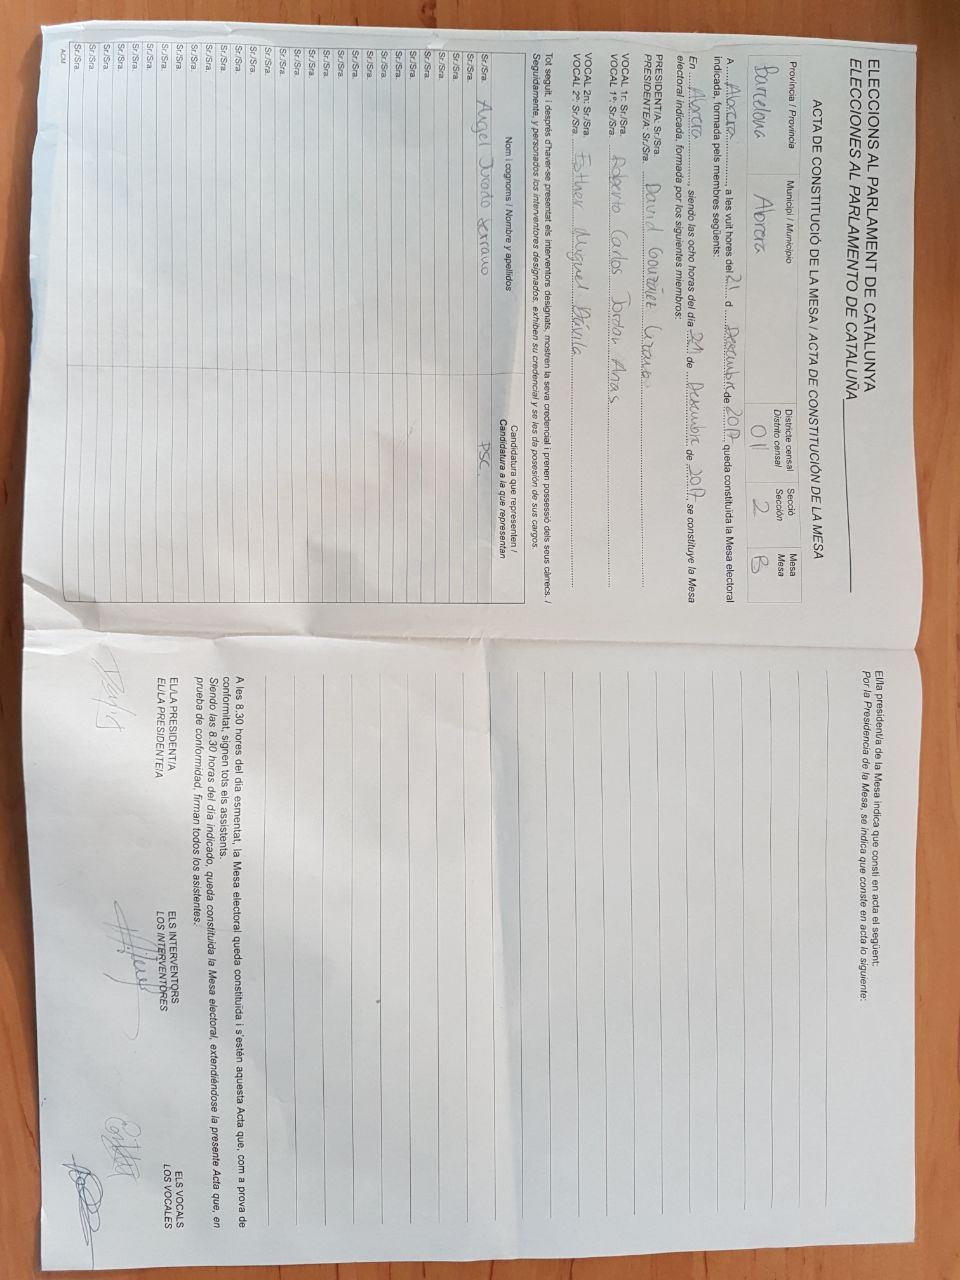 ELECCIONS AL PARLAMENT DE CATALUNYA
ELECCIONES AL PARLAMENTO DE CATALUÑA
ACTA DE CONSTITUCIÓ DE LA MESA / ACTA DE CONSTITUCIÓN DE LA MESA
Província / Provincia Municipi / Municipio Districte censal Secció Mesa
Distrito censal Sección Mesa
Barcelona Abrera 01 2 B
A Abrera, a les vuit hores del 21 d Desembre de 2017 queda constituïda la Mesa electoral
indicada, formada pels membres següents:
En Abrera, siendo las ocho horas del día 21 de Desembre de 2017, se constituye la Mesa
electoral indicada, formada por los siguientes miembros:
PRESIDENT/A: Sr./Sra.
PRESIDENTE/A: Sr./Sra. David González
VOCAL 1r: Sr./Sra.
VOCAL 1º: Sr./Sra. Roberto Carlos Jordan Arias
VOCAL 2n: Sr./Sra.
VOCAL 2º: Sr./Sra. Esther Miguel Dávila
Tot seguit, i després d'haver-se presentat els interventors designats, mostren la seva credencial i prenen possessió dels seus càrrecs. /
Seguidamente, y personados los interventores designados, exhiben su credencial y se les da posesión de sus cargos.
Nom i cognoms / Nombre y apellidos Candidatura que representen /
Candidatura a la que representan
Sr./Sra. Angel Jurado Serrano PSC.
Sr./Sra.
Sr./Sra.
Sr./Sra.
Sr./Sra.
Sr./Sra.
Sr./Sra.
Sr./Sra.
Sr./Sra.
Sr./Sra.
Sr./Sra.
Sr./Sra.
Sr./Sra.
Sr./Sra.
Sr./Sra.
Sr./Sra.
Sr./Sra.
Sr./Sra.
Sr./Sra.
Sr./Sra.
Sr./Sra.
Sr./Sra.
Sr./Sra.
Sr./Sra.
Sr./Sra.
Sr./Sra.
Sr./Sra.
Sr./Sra.
ACM
El/la president/a de la Mesa indica que consti en acta el següent:
Por la Presidencia de la Mesa, se indica que conste en acta lo siguiente:
A les 8.30 hores del dia esmentat, la Mesa electoral queda constituïda i s'estén aquesta Acta que, com a prova de
conformitat, signen tots els assistents.
Siendo las 8.30 horas del día indicado, queda constituida la Mesa electoral, extendiéndose la presente Acta que, en
prueba de conformidad, firman todos los asistentes.
EL/LA PRESIDENT/A ELS INTERVENTORS ELS VOCALS
EL/LA PRESIDENTE/A LOS INTERVENTORES LOS VOCALES